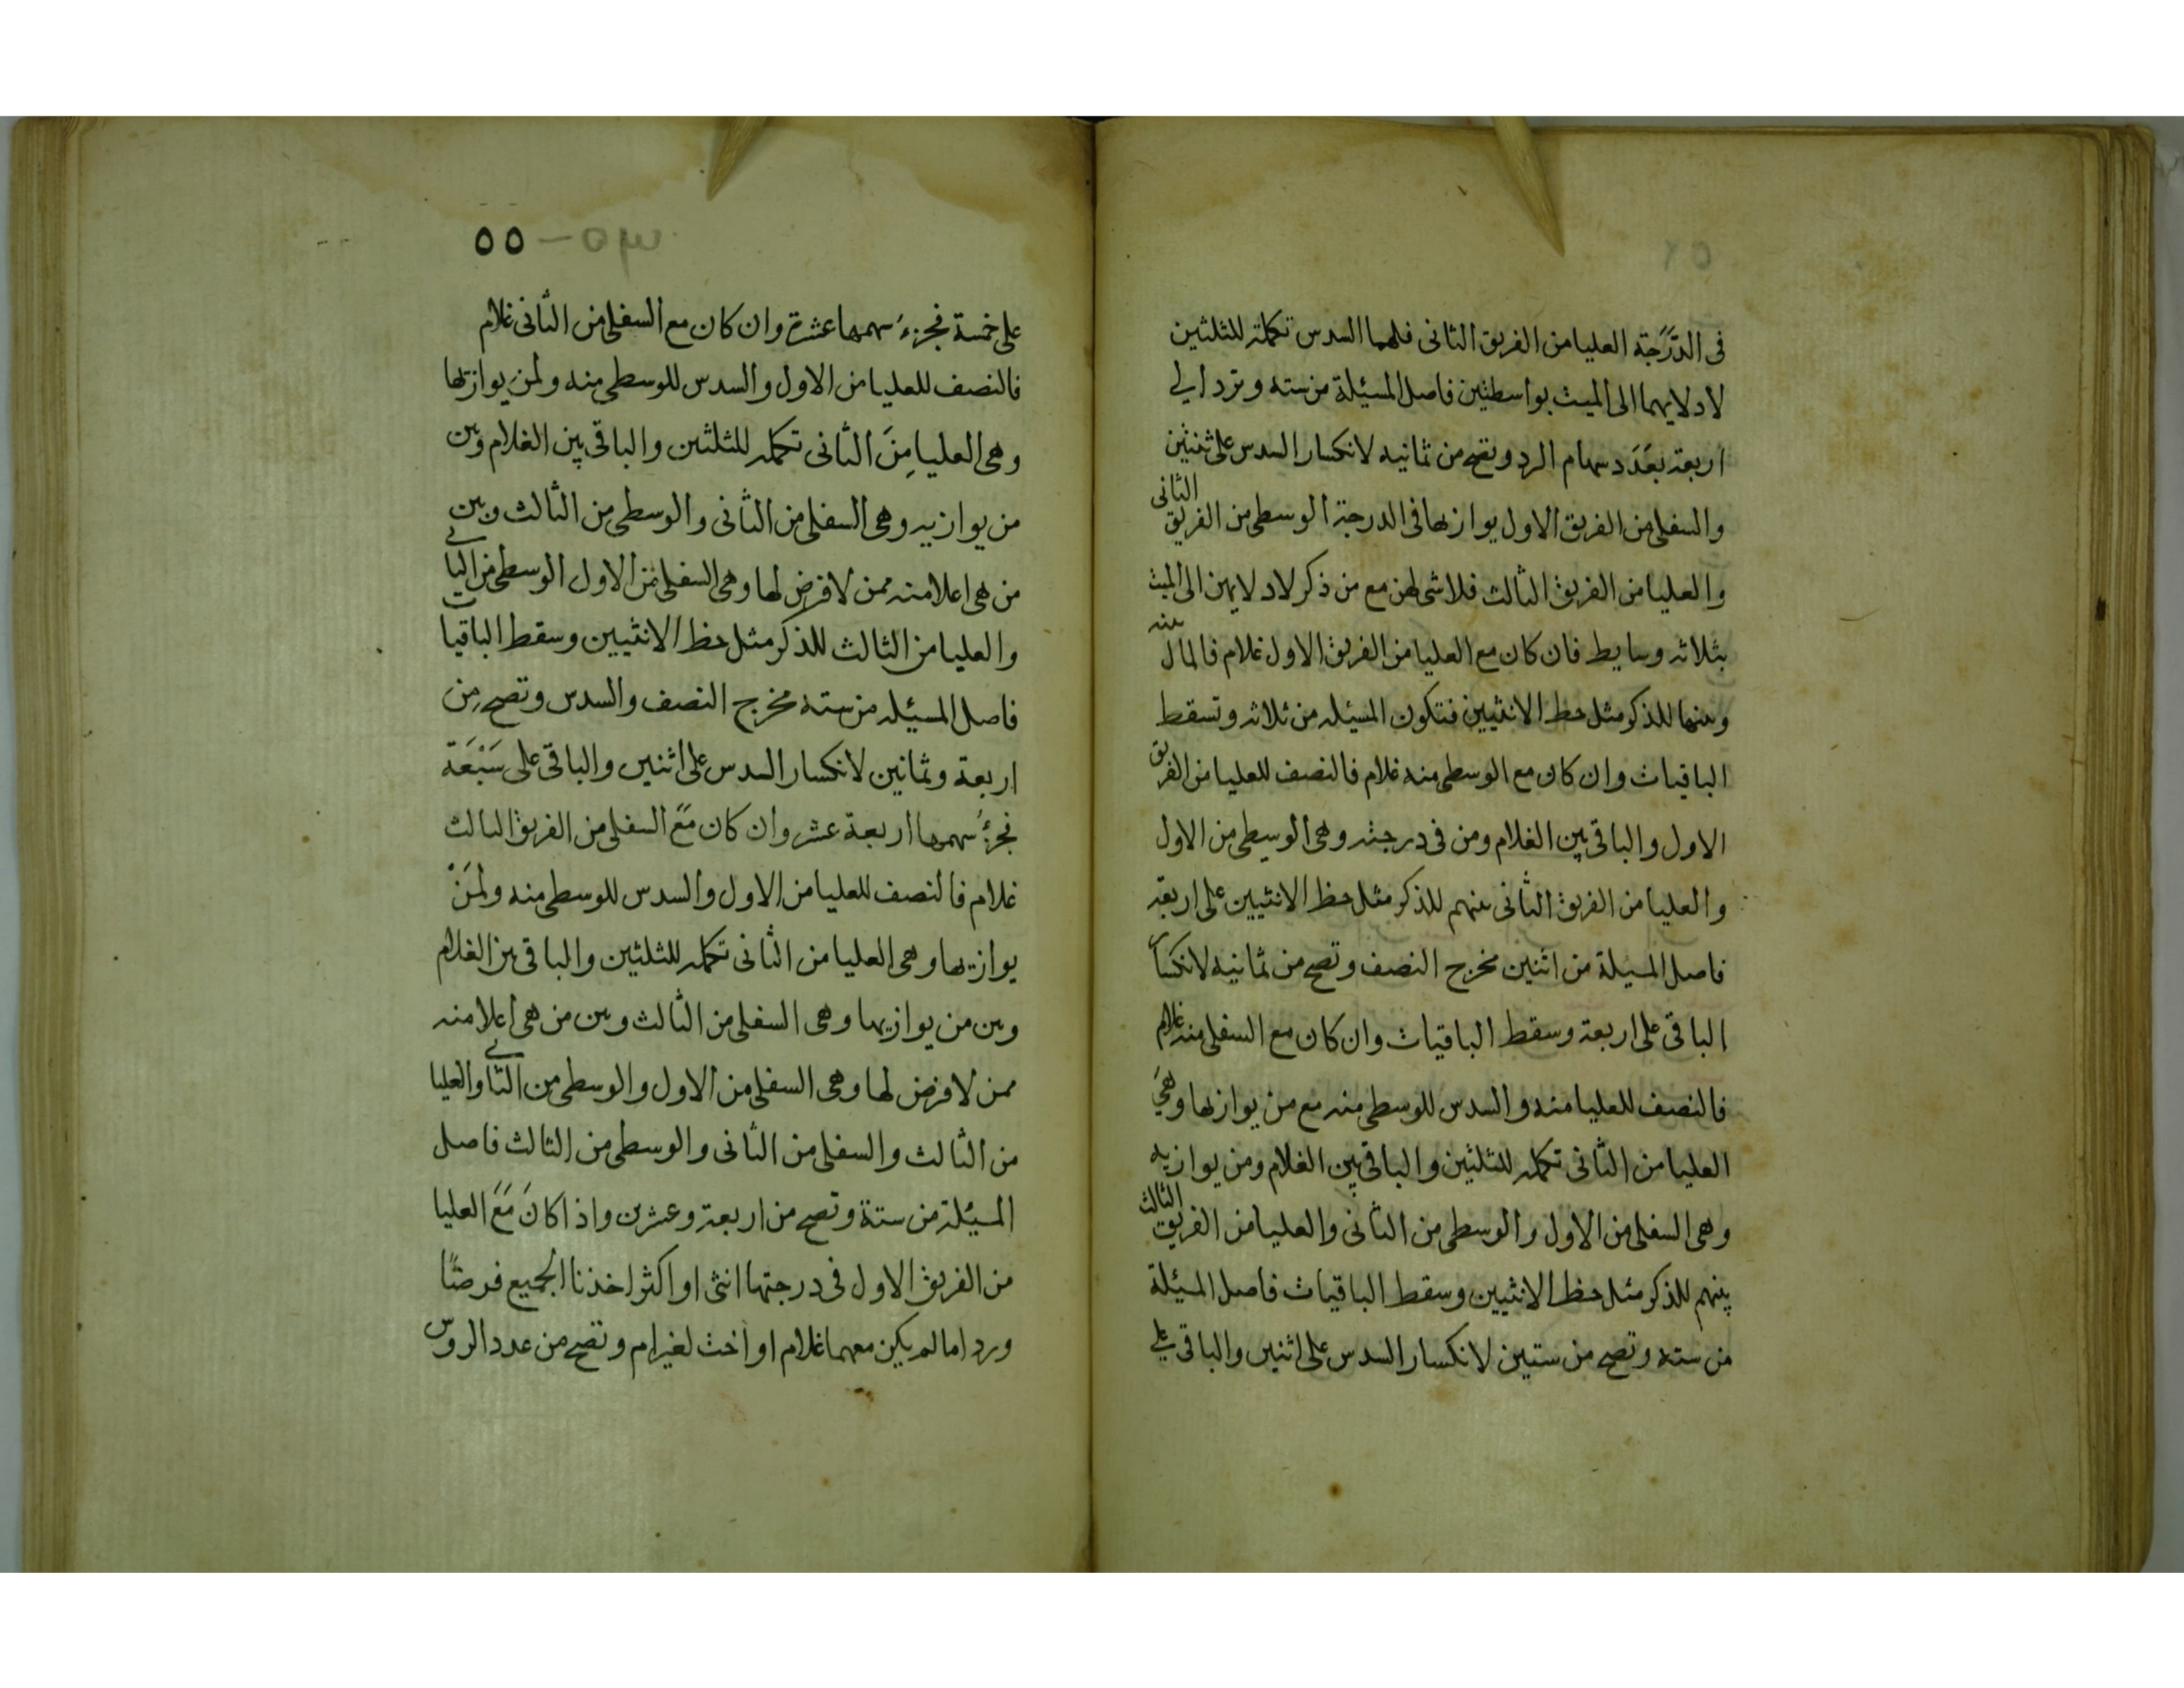 فى الدَّرَجَة العليا من الفريق الثانى فلهما السدس تكملة للثلثين
لادلايهما الى الميت بواسطتين فاصل المسئلة من سته وترد الى
اربعة بعَدَد سهام الرد وتصح من ثمانيه لانكسار السدس على ثنتين
والسفلى من الفريق الاول يوازيها فى الدرجة الوسطى من الفريق الثانى
والعليا من الفريق الثالث فلا شى لهن مع من ذكر لادلايهن الى الميت
بثلاثه وسايط فان كان مع العليا من الفريق الاول غلام فالمال بينه
وبينها للذكر مثل حظ الانثيين فتكون المسئله من ثلاثه وتسقط
الباقيات وان كان مع الوسطى منه غلام فالنصف للعليا من الفريق
الاول والباقى بين الغلام ومن فى درجته وهى الوسطى من الاول
والعليا من الفريق الثانى بينهم للذكر مثل حظ الانثيين على اربعة
فاصل المسيلة من اثنين مخرج النصف وتصح من ثمانيه لانكسار
الباقى على اربعة وسقط الباقيات وان كان مع السفلى منه غلام
فالنصف للعليا منه والسدس للوسطى منه مع من يوازيها وهىَ
العليا من الثانى تكمله للثلثين والباقى بين الغلام ومن يوازيه
وهى السفلى من الاول والوسطى من الثانى والعليا من الفريق الثالث
بينهم للذكر مثل حظ الانثيين وسقط الباقيات فاصل المسئلة
من سته وتصح من ستين لانكسار السدس على اثنين والباقى على
٥٣ – ٥٥
على خمسة فجزءُ سهمها عشرة وان كان مع السفلى من الثانى غلام
فالنصف للعليا من الاول والسدس للوسطى منه ولمن يوازيها
وهى العليا مِنَ الثانى تكمله للثلثين والباقى بين الغلام وبين
من يوازيه وهى السفلى من الثانى والوسطى من الثالث وبين
من هى اعلا منه ممن لا فرض لها وهى السفلى من الاول الوسطى من الثانى
والعليا من الثالث للذكر مثل حظ الانثيين وسقط الباقيات
فاصل المسيئله من سته مخرج النصف والسدس وتصح مِن
اربعة وثمانين لانكسار السدس على اثنين والباقى على سَبْعَة
فجزءُ سهمها اربعة عشر وان كان مَعَ السفلى من الفريق الثالث
غلام فالنصف للعليا من الاول والسدس للوسطى منه ولمَنْ
يوازيها وهى العليا من الثانى تكمله للثلثين والباقى بين الغلام
وبين من يوازيها وهى السفلى من الثالث وبين من هى اعلا منه
ممن لا فرض لها وهى السفلى من الاول والوسطى من الثانى والعليا
من الثالث والسفلى من الثانى والوسطى من الثالث فاصل
المسيئلة من ستة وتصح من اربعة وعشرين واذا كانَ مَعَ العليا
من الفريق الاول فى درجتها انثى او اكثر اخذنا الجميع فرضًا
وردا ما لم يكن معهما غلام او اخت لغير ام وتصح من عدد الروس